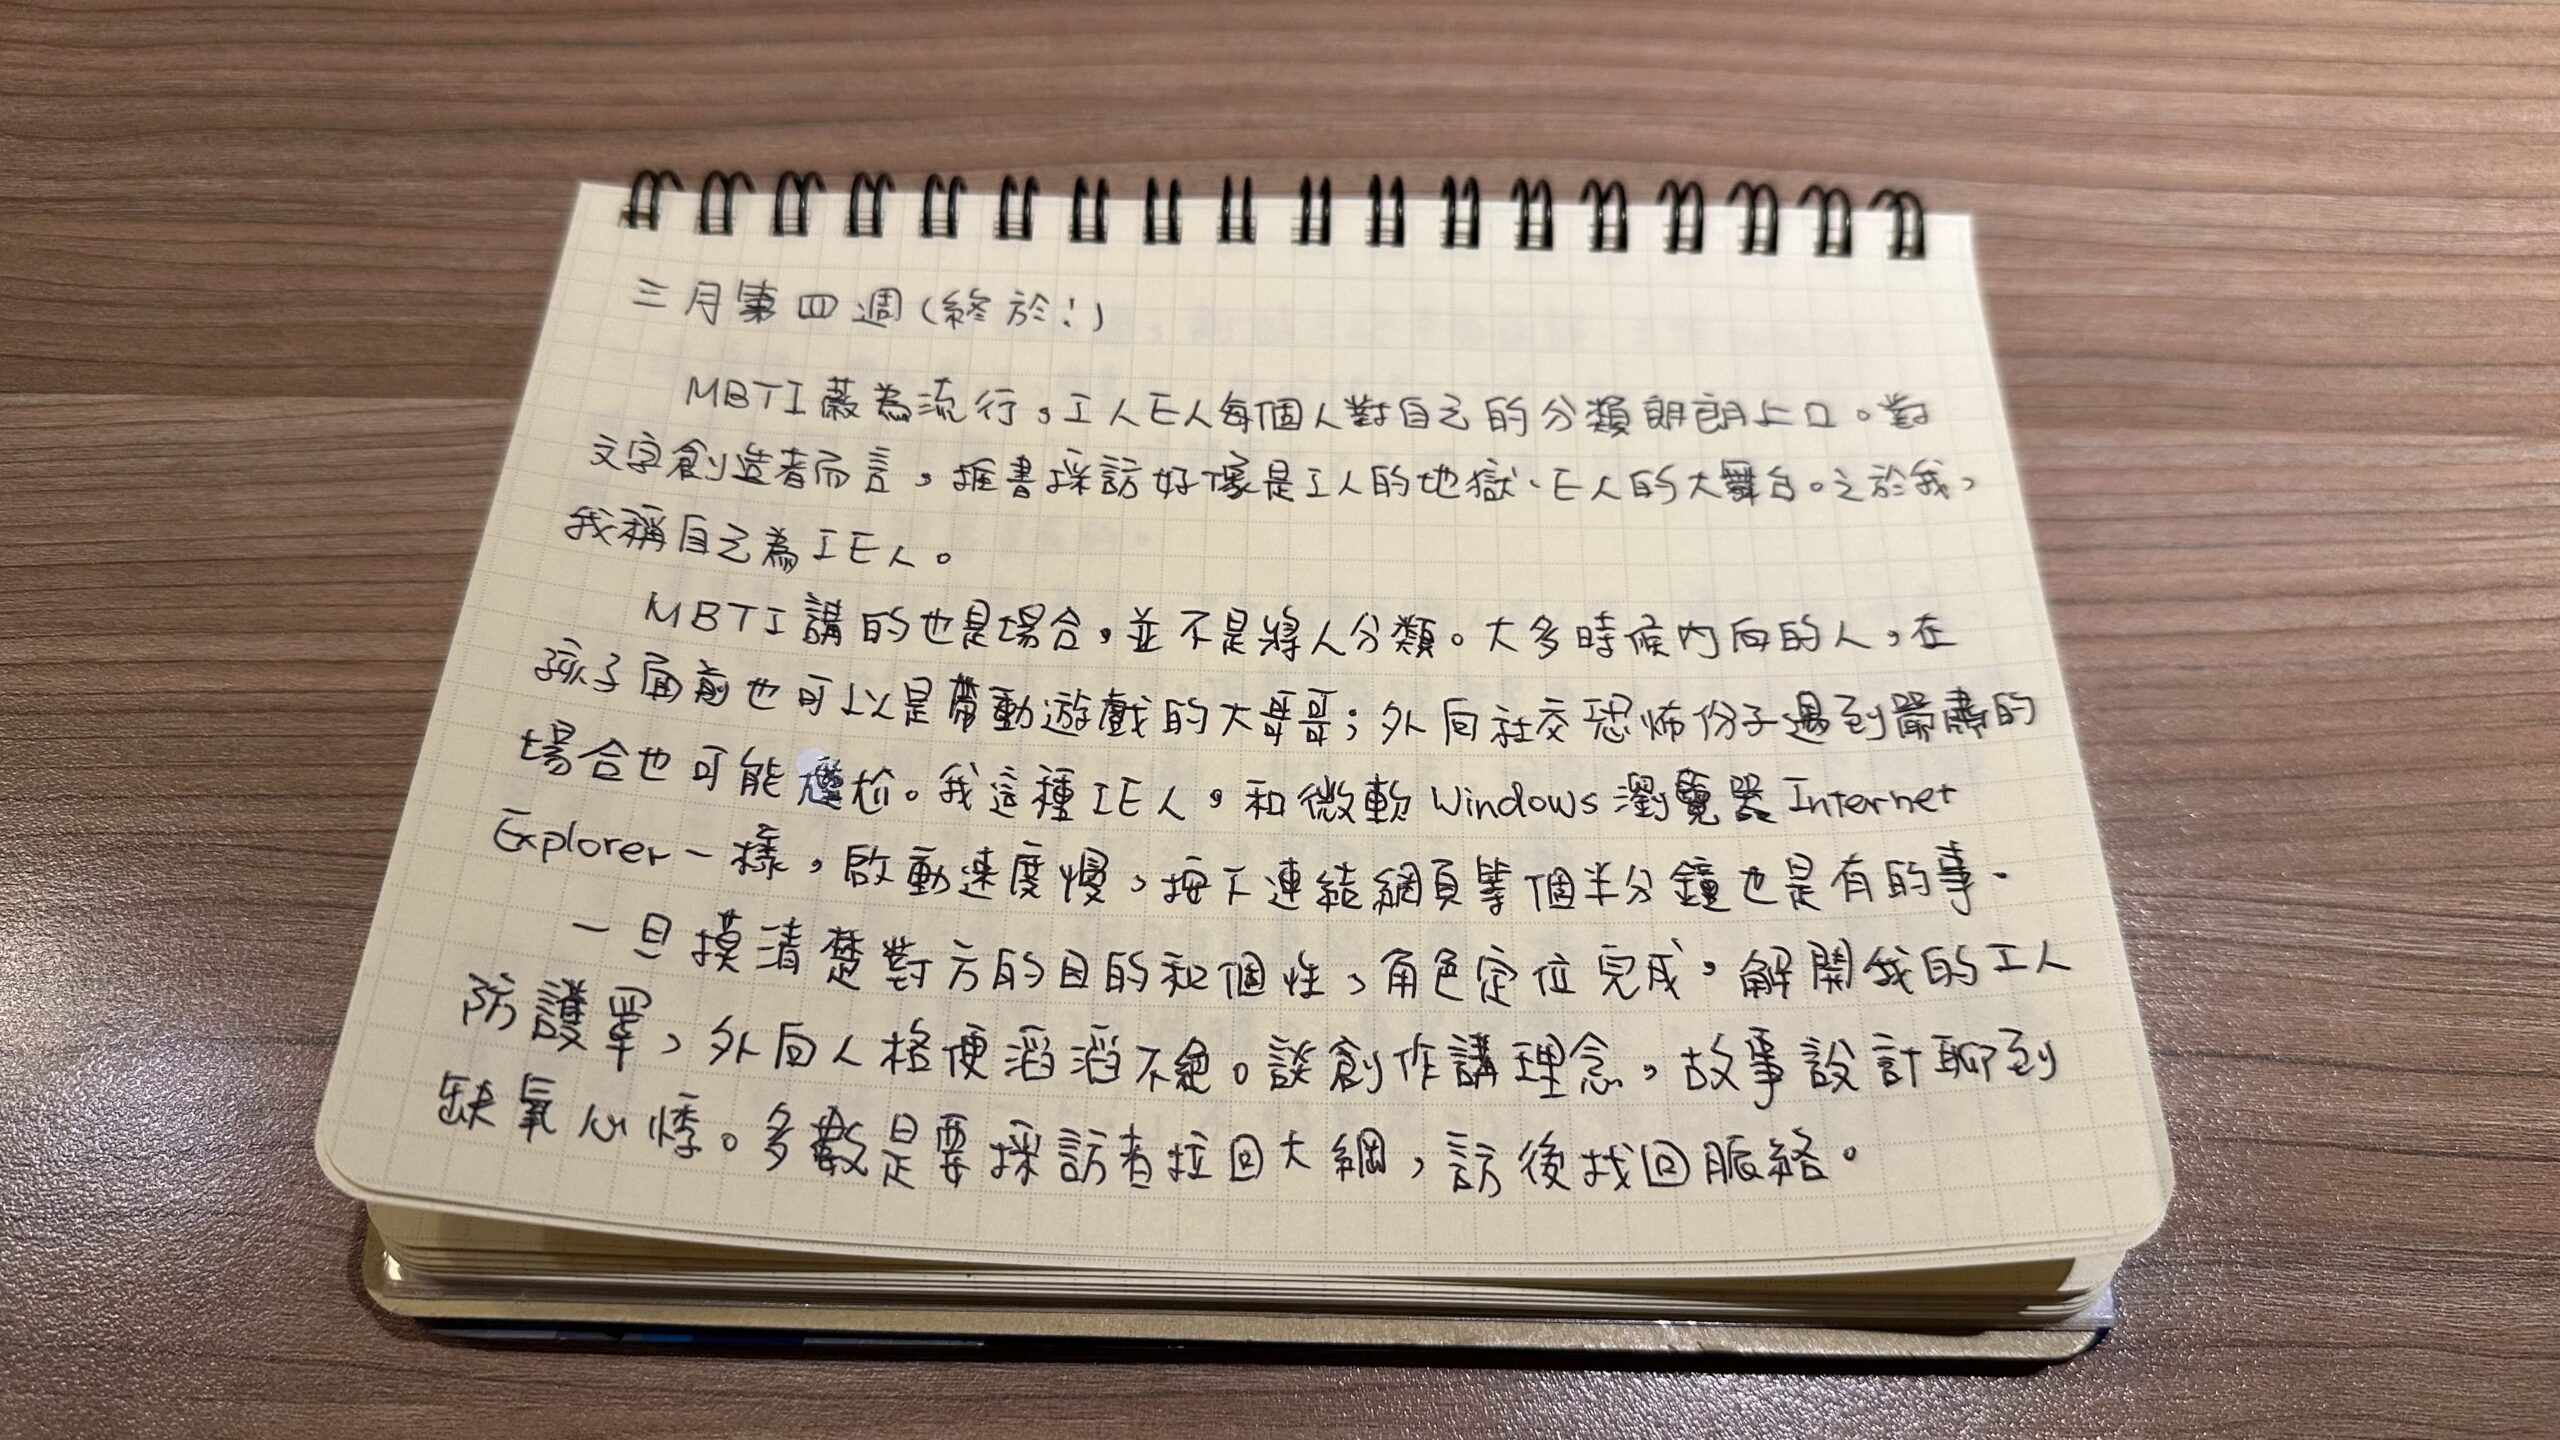 三月第四週(終於!)
MBTI蔚為流行,I人E人每個人對自己的分類朗朗上口。對
文字創造者而言,推書採訪好像是I人的地獄、E人的大舞台。之於我,
我稱自己為IE人。
MBTI講的也是場合,並不是將人分類。大多時候內向的人,在
孩子面前也可以是帶動遊戲的大哥哥;外向社交恐怖份子遇到嚴肅的
場合也可能尷尬。我這種IE人,和微軟Windows瀏覽器Internet
Explorer一樣,啟動速度慢,按下連結網頁等個半分鐘也是有的事。
一旦摸清楚對方的目的和個性,角色定位完成,解開我的I人
防護罩,外向人格便滔滔不絕。談創作講理念,故事設計聊到
缺氧心悸。多數是要採訪者拉回大綱,訪後找回脈絡。